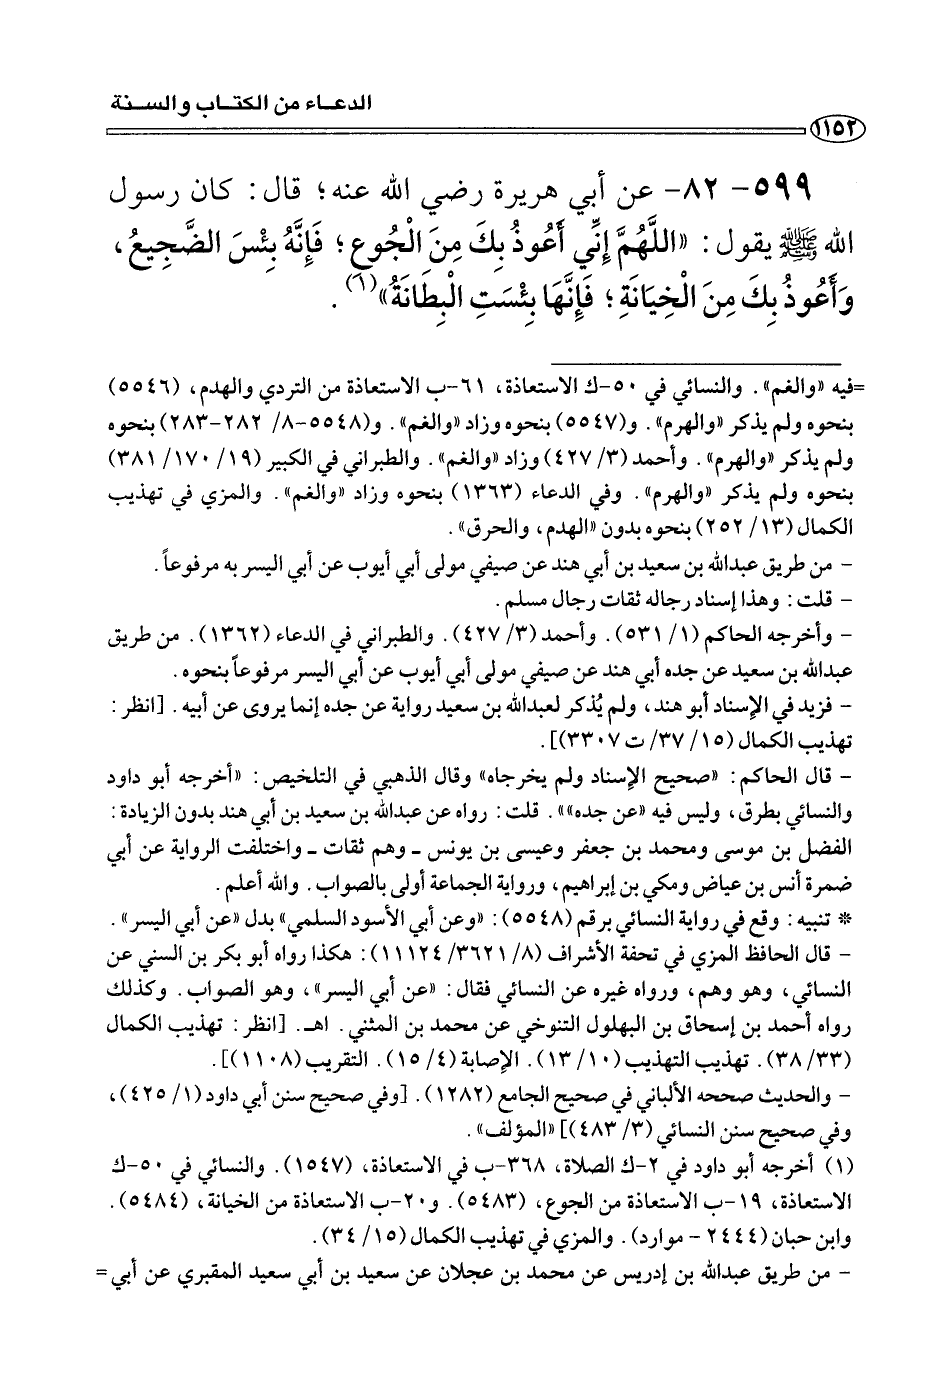 الدعاء من الكتاب والسنة
١١٥٢
٥٩٩- ٨٢- عن أبي هريرة رضي الله عنه؛ قال: كان رسول
الله ﷺ يقول: «اللَّهُمَّ إِنِّي أَعُوذُ بِكَ مِنَ الْجُوعِ؛ فَإِنَّهُ بِئْسَ الضَّجِيعُ،
وَأَعُوذُ بِكَ مِنَ الْخِيَانَةِ؛ فَإِنَّهَا بِئْسَتِ الْبِطَانَةُ»(١).
=فيه «والغم». والنسائي في ٥٠-ك الاستعاذة، ٦١-ب الاستعاذة من التردي والهدم، (٥٥٤٦)
بنحوه ولم يذكر «والهرم». و(٥٥٤٧) بنحوه وزاد «والغم». و(٥٥٤٨-٨/ ٢٨٢-٢٨٣) بنحوه
ولم يذكر «والهرم». وأحمد (٣/ ٤٢٧) وزاد «والغم». والطبراني في الكبير (١٩/ ١٧٠/ ٣٨١)
بنحوه ولم يذكر «والهرم». وفي الدعاء (١٣٦٣) بنحوه وزاد «والغم». والمزي في تهذيب
الكمال (١٣/ ٢٥٢) بنحوه بدون «الهدم، والحرق».
- من طريق عبدالله بن سعيد بن أبي هند عن صيفي مولى أبي أيوب عن أبي اليسر به مرفوعاً.
- قلت: وهذا إسناد رجاله ثقات رجال مسلم.
- وأخرجه الحاكم (١/ ٥٣١). وأحمد (٣/ ٤٢٧). والطبراني في الدعاء (١٣٦٢). من طريق
عبدالله بن سعيد عن جده أبي هند عن صيفي مولى أبي أيوب عن أبي اليسر مرفوعاً بنحوه.
- فزيد في الإسناد أبو هند، ولم يُذكر لعبدالله بن سعيد رواية عن جده إنما يروى عن أبيه. [انظر:
تهذيب الكمال (١٥/ ٣٧/ ت ٣٣٠٧)].
- قال الحاكم: «صحيح الإسناد ولم يخرجاه» وقال الذهبي في التلخيص: «أخرجه أبو داود
والنسائي بطرق، وليس فيه «عن جده»». قلت: رواه عن عبدالله بن سعيد بن أبي هند بدون الزيادة:
الفضل بن موسى ومحمد بن جعفر وعيسى بن يونس ـ وهم ثقات ـ واختلفت الرواية عن أبي
ضمرة أنس بن عياض ومكي بن إبراهيم، ورواية الجماعة أولى بالصواب. والله أعلم.
* تنبيه: وقع في رواية النسائي برقم (٥٥٤٨): «وعن أبي الأسود السلمي» بدل «عن أبي اليسر».
- قال الحافظ المزي في تحفة الأشراف (٨/ ٣٦٢١/ ١١١٢٤): هكذا رواه أبو بكر بن السني عن
النسائي، وهو وهم، ورواه غيره عن النسائي فقال: «عن أبي اليسر»، وهو الصواب. وكذلك
رواه أحمد بن إسحاق بن البهلول التنوخي عن محمد بن المثني. اهـ. [انظر: تهذيب الكمال
(٣٣/ ٣٨). تهذيب التهذيب (١٠/ ١٣). الإصابة (٤/ ١٥). التقريب (١١٠٨)].
- والحديث صححه الألباني في صحيح الجامع (١٢٨٢). [وفي صحيح سنن أبي داود (١/ ٤٢٥)،
وفي صحيح سنن النسائي (٣/ ٤٨٣)] «المؤلف».
(١) أخرجه أبو داود في ٢-ك الصلاة، ٣٦٨-ب في الاستعاذة، (١٥٤٧). والنسائي في ٥٠-ك
الاستعاذة، ١٩-ب الاستعاذة من الجوع، (٥٤٨٣). و٢٠-ب الاستعاذة من الخيانة، (٥٤٨٤).
وابن حبان (٢٤٤٤ - موارد). والمزي في تهذيب الكمال (١٥/ ٣٤).
- من طريق عبدالله بن إدريس عن محمد بن عجلان عن سعيد بن أبي سعيد المقبري عن أبي=